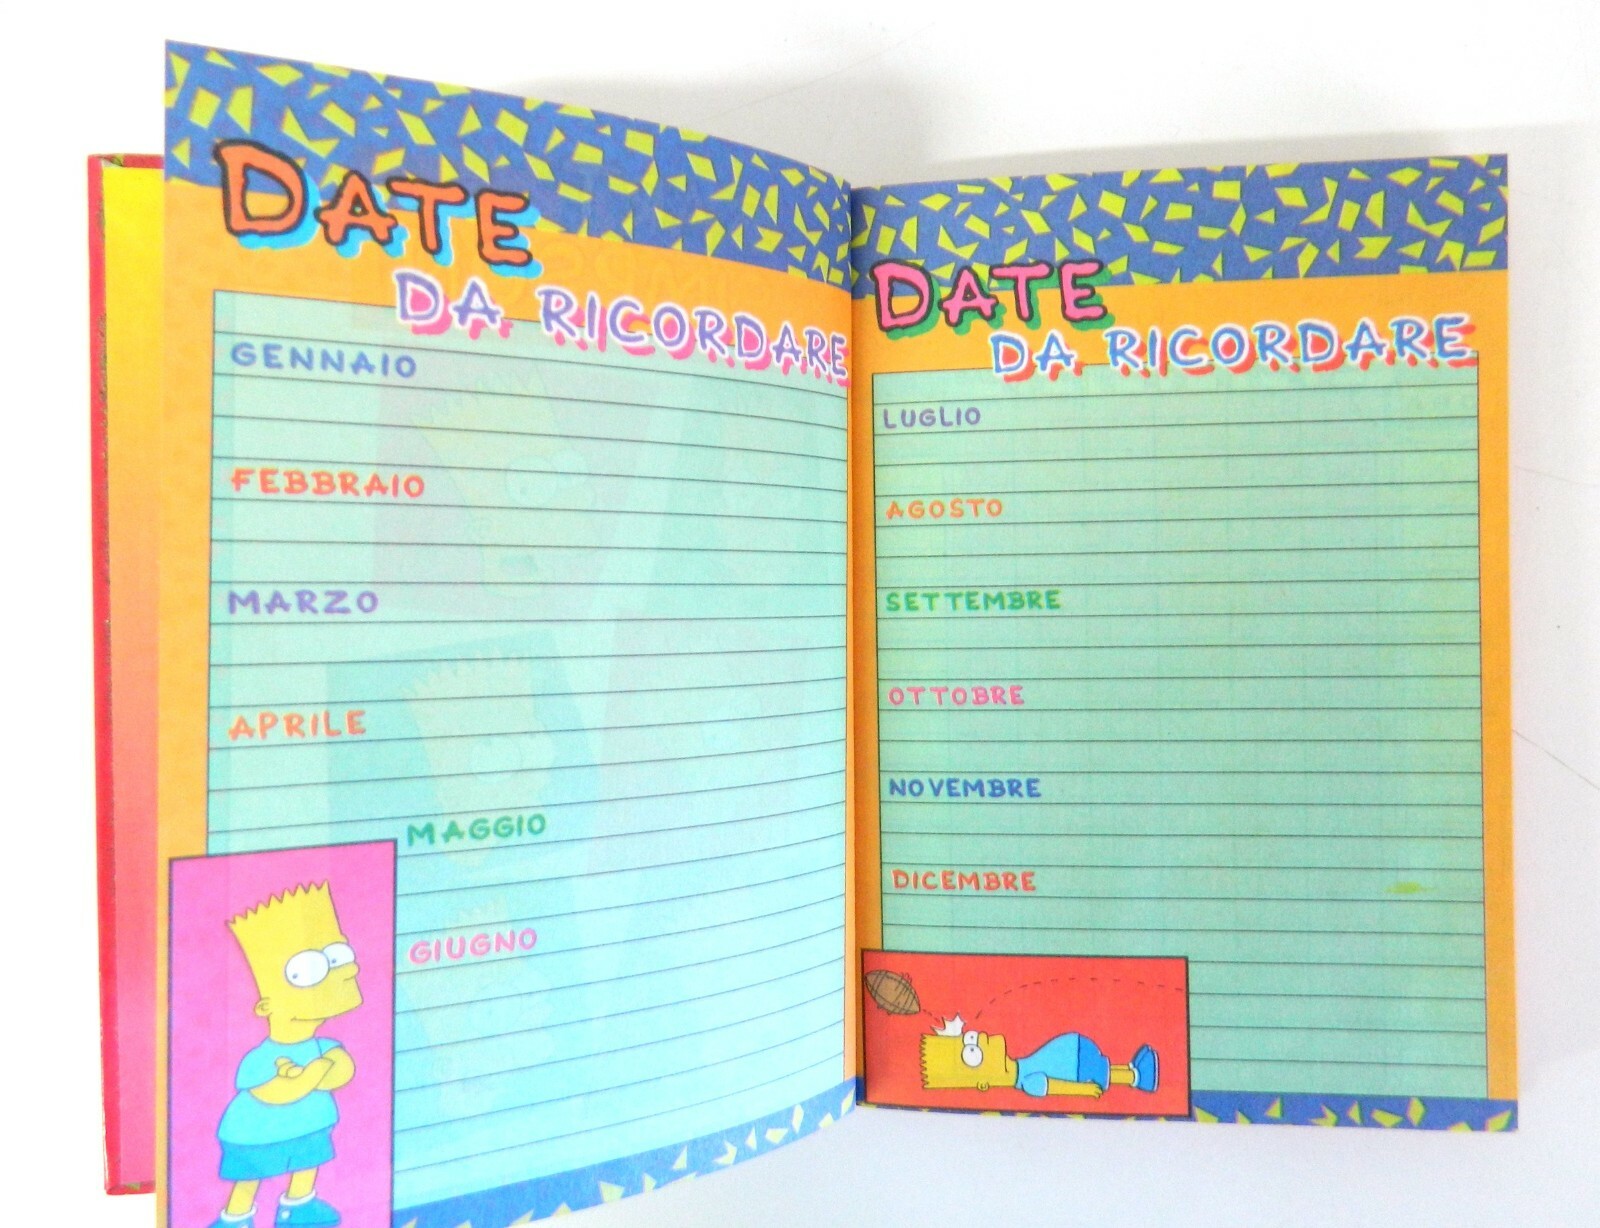 DATE
DA RICORDARE
GENNAIO
FEBBRAIO
MARZO
APRILE
MAGGIO
GIUGNO
DATE
DA RICORDARE
LUGLIO
AGOSTO
SETTEMBRE
OTTOBRE
NOVEMBRE
DICEMBRE